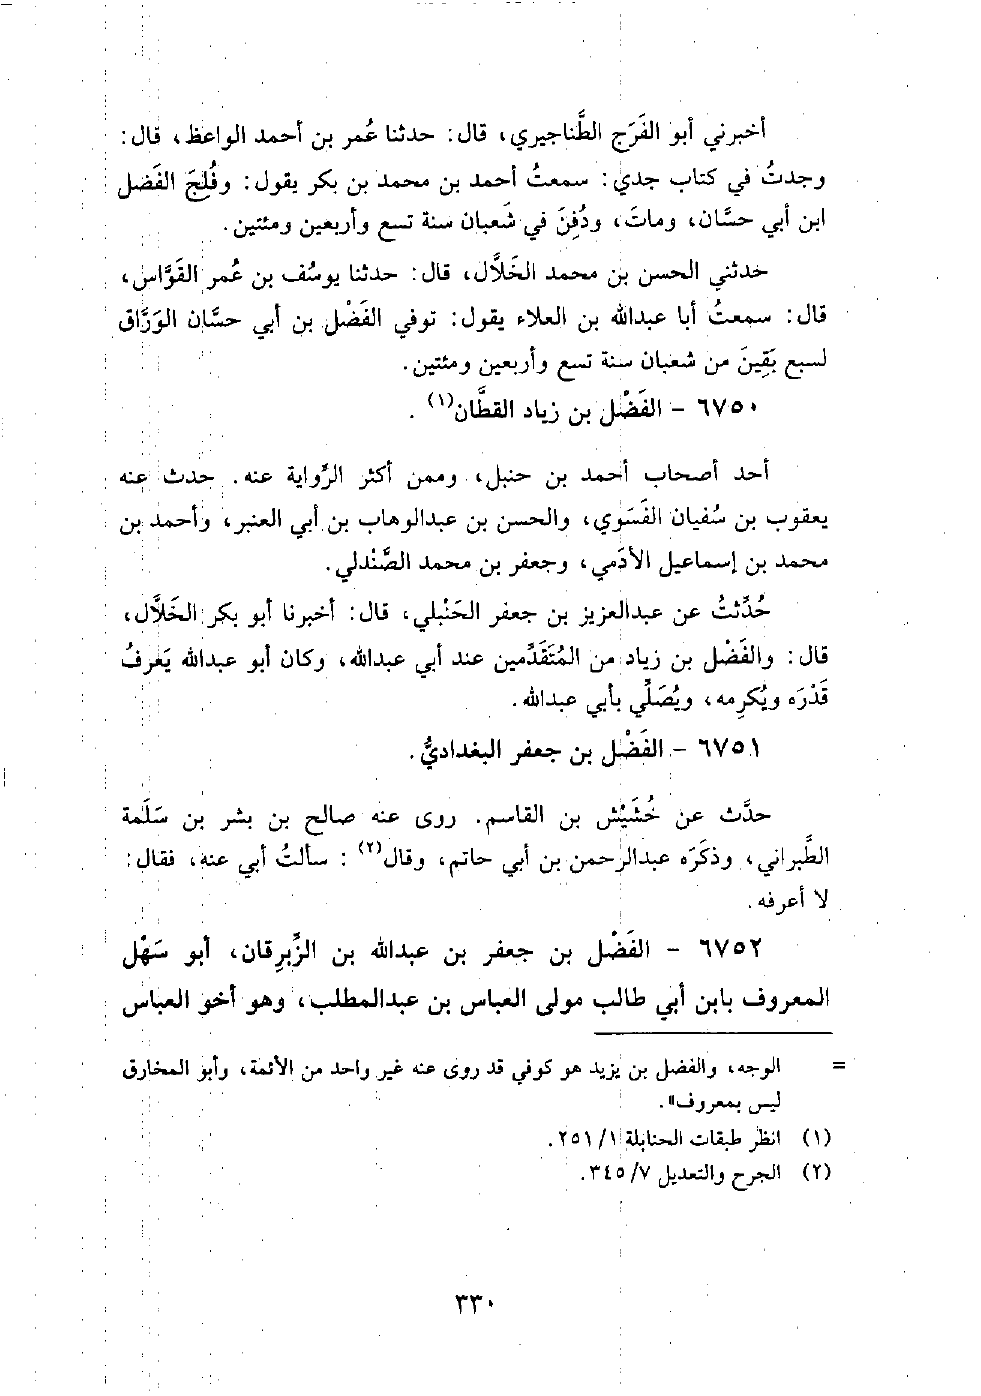 أخبرني أبو الفَرَج الطَّناجيري، قال: حدثنا عُمر بن أحمد الواعظ، قال:
وجدتُ في كتاب جدي: سمعتُ أحمد بن محمد بن بكر يقول: وفُلِجَ الفَضل
ابن أبي حسَّان، وماتَ، ودُفِنَ في شَعبان سنة تسع وأربعين ومئتين.
حدثني الحسن بن محمد الخَلاَّل، قال: حدثنا يوسُف بن عُمر القَوَّاس،
قال: سمعتُ أبا عبدالله بن العلاء يقول: توفي الفَضْل بن أبي حسَّان الوَرَّاق
لسبع بَقِينَ من شعبان سنة تسع وأربعين ومئتين.
٦٧٥٠ - الفَضْل بن زياد القطَّان(١).
أحد أصحاب أحمد بن حنبل، وممن أكثر الرِّواية عنه. حدث عنه
يعقوب بن سُفيان الفَسَوي، والحسن بن عبدالوهاب بن أبي العنبر، وأحمد بن
محمد بن إسماعيل الأدَمي، وجعفر بن محمد الصَّندلي.
حُدِّثتُ عن عبدالعزيز بن جعفر الحَنْبلي، قال: أخبرنا أبو بكر الخَلاَّل،
قال: والفَضْل بن زياد من المُتَقَدِّمين عند أبي عبدالله، وكان أبو عبدالله يَعرفُ
قَدْرَه ويُكرِمه، ويُصَلِّي بأبي عبدالله.
٦٧٥١ - الفَضْل بن جعفر البغداديُّ.
حدَّث عن خُشَيْش بن القاسم. روى عنه صالح بن بشر بن سَلَمة
الطَّبراني، وذكَرَه عبدالرحمن بن أبي حاتم، وقال(٢): سألتُ أبي عنه، فقال:
لا أعرفه.
٦٧٥٢ - الفَضْل بن جعفر بن عبدالله بن الزِّبرِقان، أبو سَهْل
المعروف بابن أبي طالب مولى العباس بن عبدالمطلب، وهو أخو العباس
= الوجه، والفضل بن يزيد هو كوفي قد روى عنه غير واحد من الأئمة، وأبو المخارق
ليس بمعروف».
(١) انظر طبقات الحنابلة ١/ ٢٥١.
(٢) الجرح والتعديل ٧/ ٣٤٥.
٣٣٠